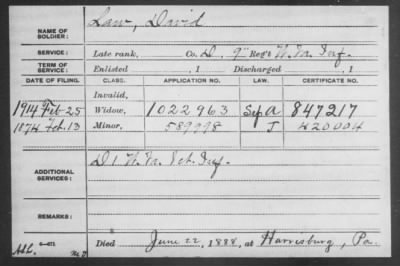 NAME OF SOLDIER: Law, David
SERVICE: Late rank, Co. D, 9" Reg't W. Va. Inf.
TERM OF SERVICE: Enlisted , 1 Discharged , 1
DATE OF FILING. CLASS. APPLICATION NO. CERTIFICATE NO.
Invalid,
1914 Feb 25 Widow, 1022963 847217
1874 Feb. 13 Minor, 589998 J 420004
ADDITIONAL SERVICES: D 1 W. Va. Inf.
REMARKS:
Died June 22, 1888, at Harrisburg, Pa.